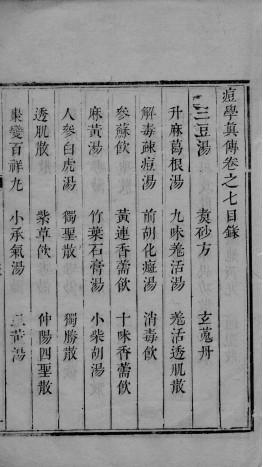 痘學眞傳卷之七目錄
三豆湯 袁砂方 玄菟丹
升麻葛根湯 九味羗活湯 羗活透肌散
解毒疎痘湯 前胡化癍湯 消毒飲
參蘇飲 黃連香薷飲 十味香薷飲
麻黃湯 竹葉石膏湯 小柴胡湯
人參白虎湯 獨聖散 獨勝散
透肌散 紫草飲 仲陽四聖散
棗變百祥丸 小承氣湯 三黃湯